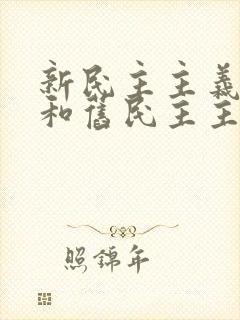 新民主主義
和舊民主主
照錦年